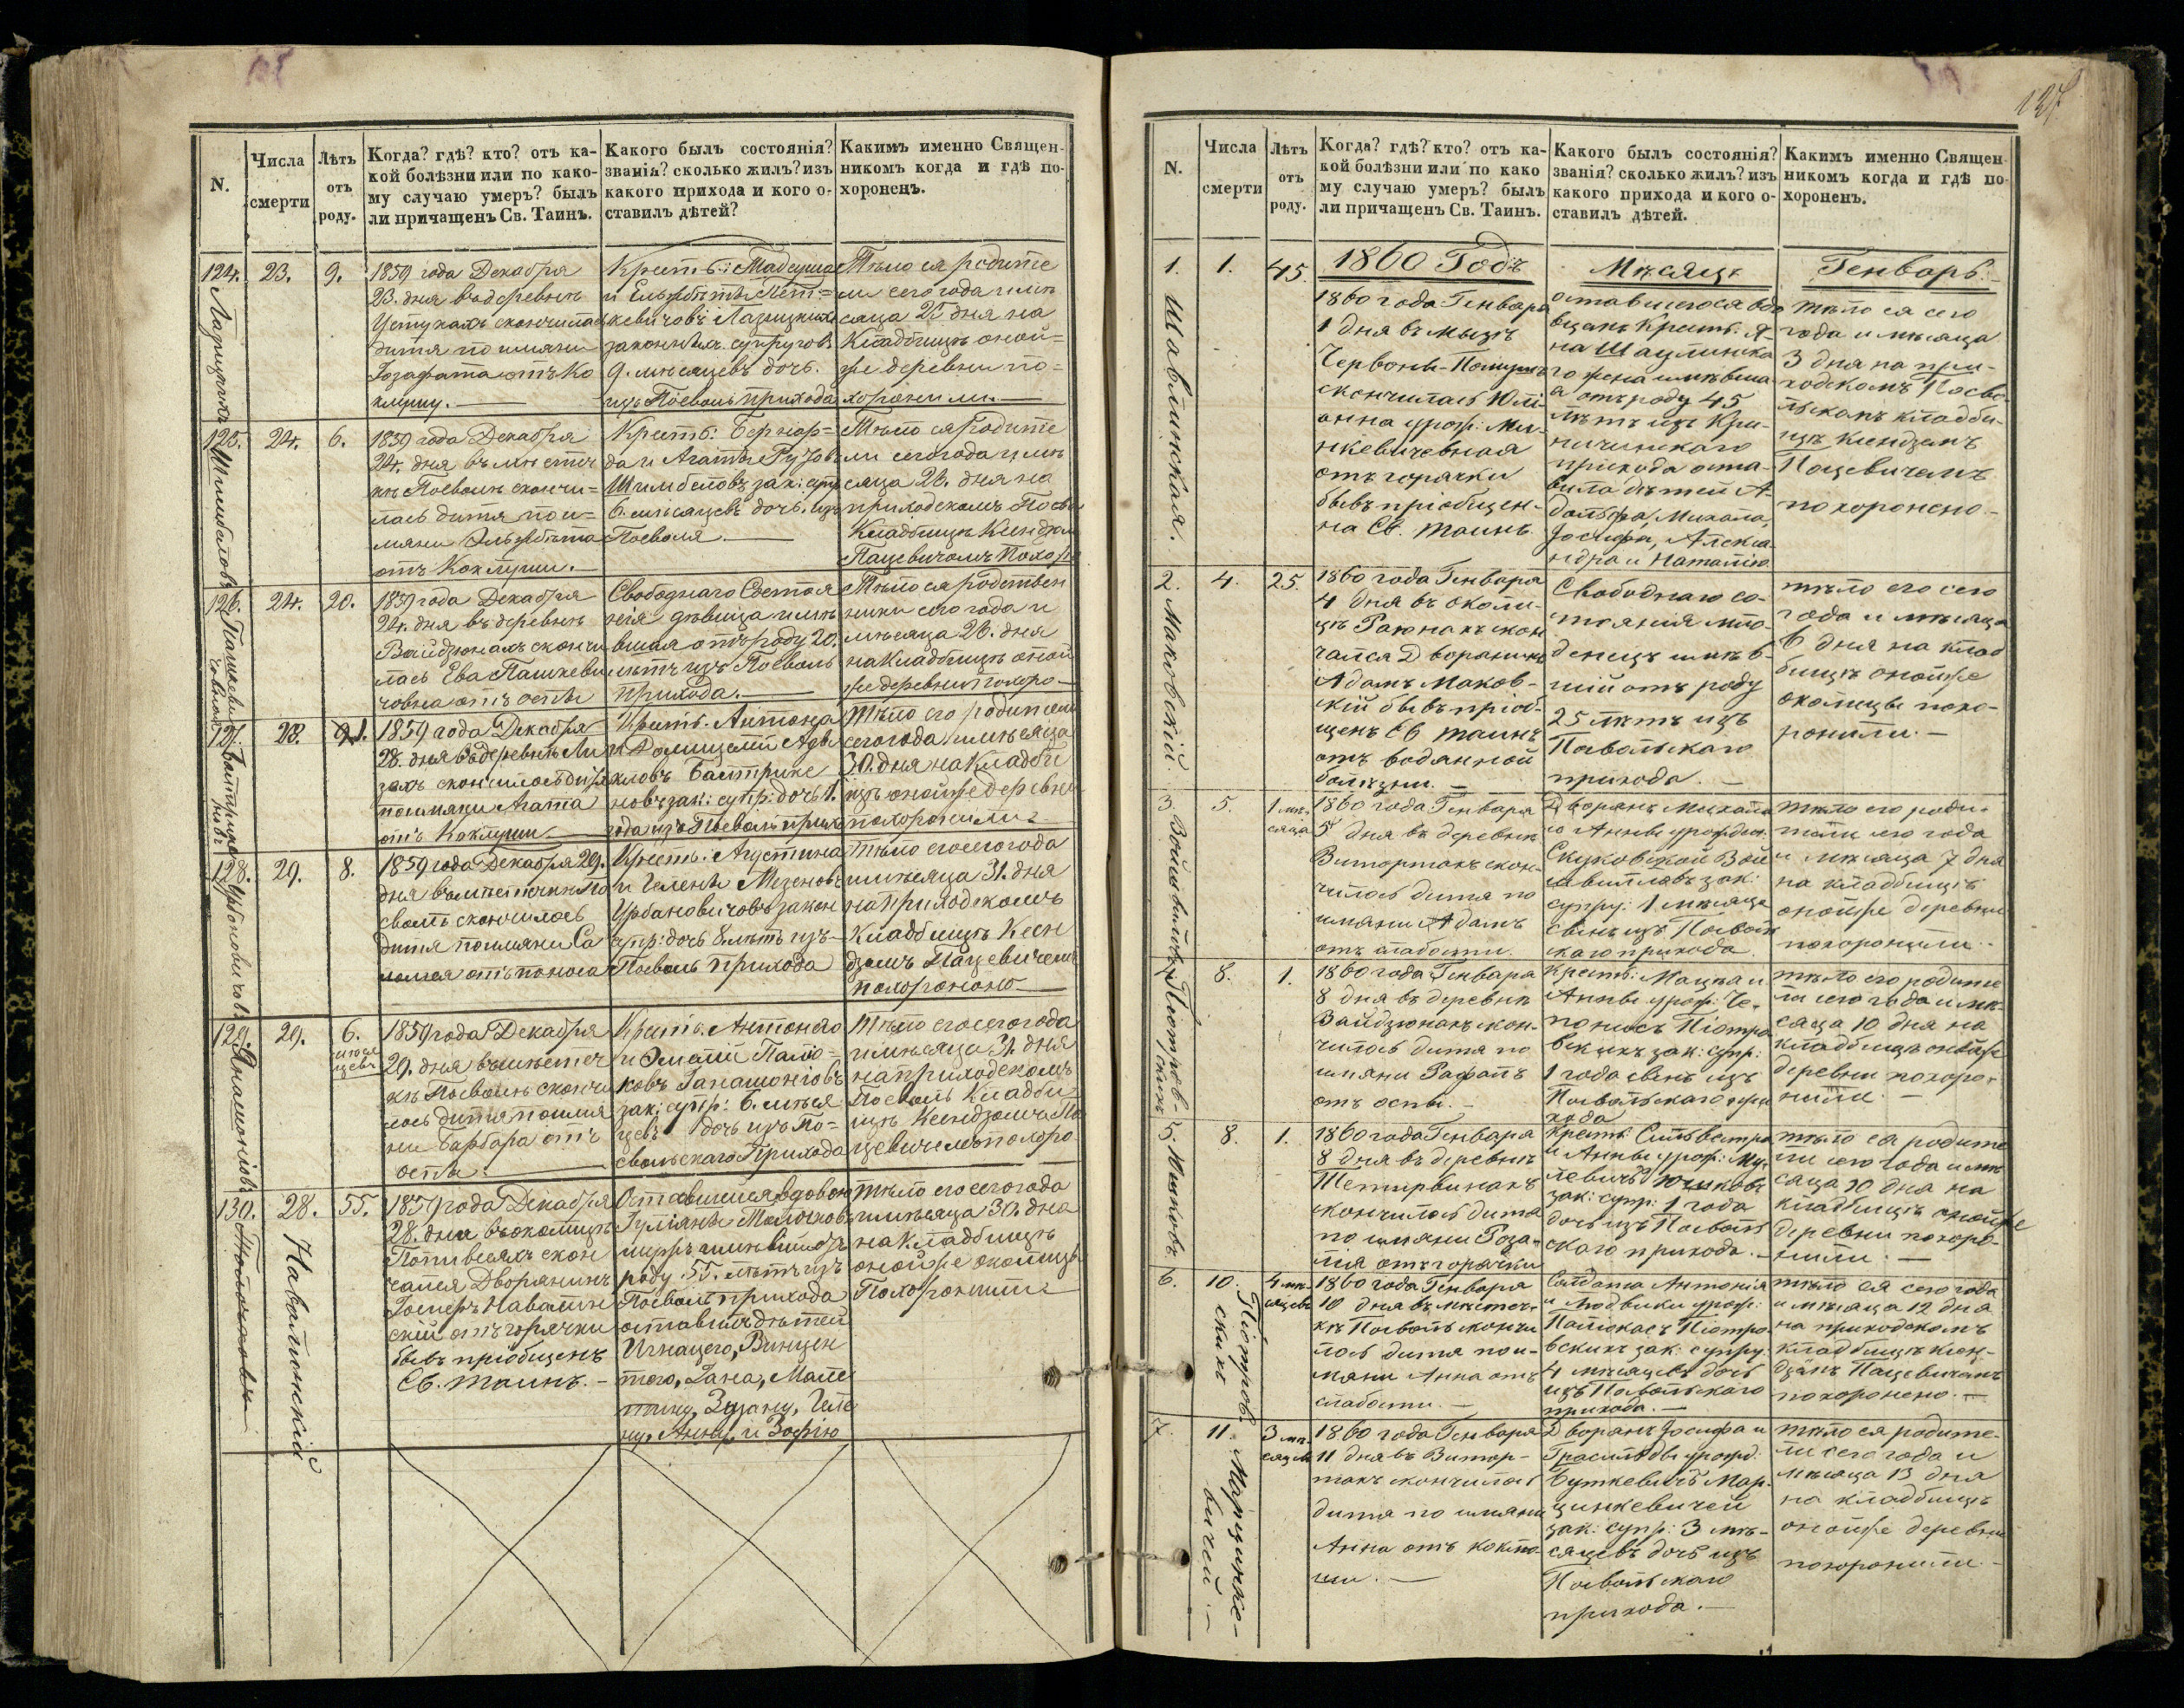 N.
Числа
смерти
Лѣтъ
отъ
роду.
Когда? гдѣ? кто? отъ ка-
кой болѣзни или по како-
му случаю умеръ? былъ
ли причащенъ Св. Таинъ.
Какого былъ состоянія?
званія? сколько жилъ? изъ
какого прихода и кого о-
ставилъ дѣтей?
Какимъ именно Священ-
никомъ когда и гдѣ по-
хороненъ.
124.
23.
9.
1859 года Декабря
23. дня въ деревнѣ
скончилась
дитя по имяни
Іозафата отъ Ко
клушу.
Крест:
законныхъ супруговъ
9. мѣсяцевъ дочь.
изъ Поеволь прихода
Тѣло ея родите
ли сего года и мѣ
сяца 25 дня на
Кладбищѣ оной=
же деревни по=
хоронили.
125.
24.
6.
1859 года Декабря
24. дня въ мѣстеч
кѣ Поеволѣ скончи=
лась дитя по и=
мяни Эльжбета
отъ Коклуши.
Крест: Бернар=
да и Агаты
6. мѣсяцевъ дочь. изъ
Поеволя.
Тѣло ея родите
ли сего года и мѣ
сяца 26. дня на
приходскомъ
Кладбищѣ Ксендзом
Пацевичомъ
126.
24.
20.
1859 года Декабря
24. дня въ деревнѣ
Вайдзюнахъ сконч
лась Ева Пашкеви
човна отъ оспы
Свободнаго Состоя
нія дѣвица имѣ
вшая отъ роду 20.
лѣтъ изъ Поеволь
прихода.
Тѣло ея родствен
ники сего года и
мѣсяца 26. дня
на Кладбищѣ оной
же деревни похоро
127.
28.
1.
1859 года Декабря
28. дня въ деревнѣ
скончилось дитя
по имяни Агата
отъ Коклуши
Крест. Антона
зак: супр: дочь 1.
года изъ Поеволь прих
Тѣло его родители
сего года и мѣсяца
30. дня на Кладби
щѣ оной же деревни
похоронили
128.
29.
8.
1859 года Декабря 29.
дня въ мѣстечкѣ По
еволѣ скончилось
дитя по имяни Са
ломея отъ поноса
Крест: Агустина
и Гелены
Урбановичовъ закон
супр: дочь 8 лѣтъ изъ
Поеволь прихода
Тѣло его сего года
и мѣсяца 31. дня
на приходскомъ
Кладбищѣ Ксен
дзомъ Пацевичемъ
похоронено
129.
29.
6.
мѣся
цевъ
1859 года Декабря
29. дня въ мѣстеч
кѣ Поеволѣ сконч
лось дитя по имя
ни Барбара отъ
оспы.
Крест. Антонію
зак: супр: 6. мѣся
цевъ дочь изъ По=
евольскаго Прихода
Тѣло его сего года
и мѣсяца 31. дня
на приходскомъ
Поеволь Кладби
щѣ Ксендзомъ Па
цевичемъ похоро
130.
Навалинскій
28.
55.
1859 года Декабря
28. дня въ околицѣ
скон
чался Дворянинъ
отъ горячки
бывъ пріобщенъ
Св. таинъ.
Оставшися вдовою
роду 55. лѣтъ изъ
Поеволь прихода
оставилъ дѣтей
Игнацего, Винцен
того, Зузану, Геле
ну, Анну и Зофію
Тѣло его сего года
и мѣсяца 30. дня
на Кладбищѣ
оной же околицы
Похоронили
127
N.
Числа
смерти
Лѣтъ
отъ
роду.
Когда? гдѣ? кто? отъ ка-
кой болѣзни или по како
му случаю умеръ? былъ
ли причащенъ Св. Таинъ.
Какого былъ состоянія?
званія? сколько жилъ? изъ
какого прихода и кого о-
ставилъ дѣтей.
Какимъ именно Священ
никомъ когда и гдѣ по
хороненъ.
1860 Годъ
Мѣсяцъ
Генварь.
1.
Шавлинская.
1.
45.
1860 года Генваря
1 дня въ мызѣ
скончилась Юлі-
анна урож: Ми-
нкевичевная
отъ горячки
бывъ пріобщен-
на Св. таинъ.
оставшегося вдо
вцамъ Крест: Я-
на
го жена имѣвша
а отъ роду 45
лѣтъ изъ Кри-
ничинскаго
прихода оста-
вила дѣтей А-
дольфа, Михала,
Іосифа, Алекса
ндра и Наталію
тѣло ея сего
года и мѣсяца
3 дня на при-
ходскомъ Поево-
льскомъ кладби-
щѣ ксендзомъ
Пацевичемъ
похоронено.
2.
Маковскій.
4.
25.
1860 года Генваря
4 дня въ околи-
цѣ скон
чался Дворянинъ
Адамъ Маков-
скій бывъ пріоб-
щенъ Св таинъ
отъ водянной
болѣзни.
Свободнаго со-
тоянія мло-
денецъ имѣв-
шій отъ роду
25 лѣтъ изъ
Повольскаго
прихода.
тѣло его сего
года и мѣсяца
6 дня на клад
бищѣ онойже
околицы похо-
ронили.
3.
5.
1 мѣ-
сяца
1860 года Генваря
5 дня въ деревнѣ
скон-
чилось дитя по
имяни Адамъ
отъ слабости.
Дворянъ Михала
и Анны урожден
зак:
супру: 1 мѣсяца
сынъ изъ Поволь
скаго прихода
тѣло его роди-
тели сего года
и мѣсяца 7 дня
на кладбищѣ
онойже деревни
похоронили.
8.
1.
1860 года Генваря
8 дня въ деревнѣ
Вайдзюнахъ скон-
чилось дитя по
имяни Рафалъ
отъ оспы.
Крест: Мацка и
Анны урож: Че-
поносъ Піотро
вскихъ зак: супр:
1 года сынъ изъ
Повольскаго при
хода
тѣло его родите
ли сего года и мѣ-
сяца 10 дня на
кладбищѣ онойже
деревни похоро-
нили.
5.
8.
1.
1860 года Генваря
8 дня въ деревнѣ
скончилось дитя
по имяни Роза-
лія отъ горячки
Крест: Сильвестра
и Анны урож:
зак: супр: 1 года
дочь изъ Поволь
скаго прихода.
тѣло ея родите
ли сего года и мѣ
сяца 10 дня на
кладбищѣ онойже
деревни похоро-
нили.
6.
Піотров-
скихъ
10.
4 мѣ-
сяцевъ
1860 года Генваря
10 дня въ мѣстеч-
кѣ Поволь сконч
лось дитя по и-
мяни Анна отъ
слабости.
Солдата Антонія
и Людвики урож:
Піотро-
вскихъ зак: супру:
4 мѣсяцевъ дочь
изъ Повольскаго
прихода.
тѣло ея сего года
и мѣсяца 12 дня
на приходскомъ
кладбищѣ ксен-
дзамъ Пацевичамъ
похоронено.
7.
Марцинке-
вичей.
11
3 мѣ-
сяцевъ
1860 года Генваря
11 дня въ
скончилось
дитя по имяни
Анна отъ коклю-
ши.
Дворянъ Іосифа и
урожд:
Буткевичъ Мар-
цинкевичей
зак: супр: 3 мѣ-
сяцевъ дочь изъ
Повольскаго
прихода.
тѣло ея родите-
ли сего года и
мѣсяца 13 дня
на кладбищѣ
онойже деревни
похоронили.